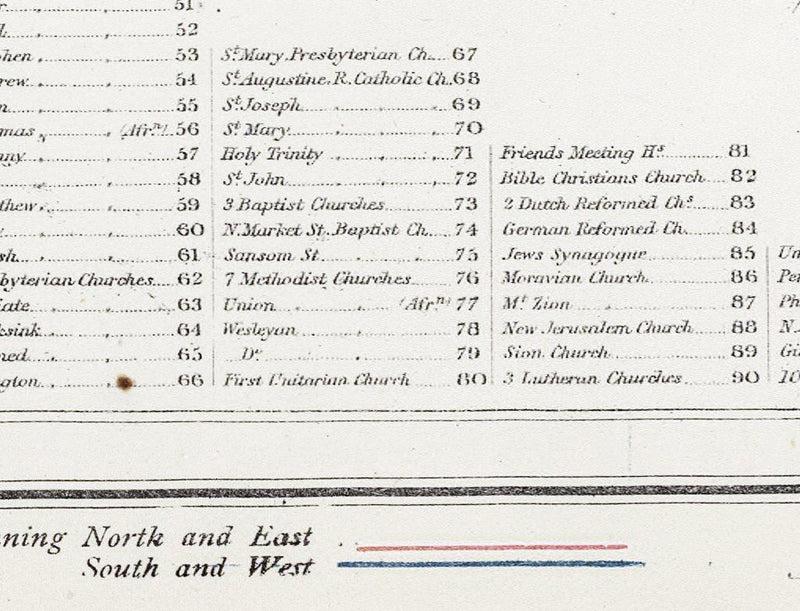 51
52
53
54
55
(Afrn) 56
57
58
59
60
61
byterian Churches 62
63
64
65
66
St Mary Presbyterian Ch. 67
St Augustine, R. Catholic Ch. 68
St Joseph 69
St Mary 70
Holy Trinity 71
St John 72
3 Baptist Churches 73
N. Market St. Baptist Ch. 74
Sansom St. 75
7 Methodist Churches 76
Union (Afrn) 77
Wesleyan 78
Do 79
First Unitarian Church 80
Friends Meeting Hs 81
Bible Christians Church 82
2 Dutch Reformed Chs 83
German Reformed Ch. 84
Jews Synagogue 85
Moravian Church 86
Mt Zion 87
New Jerusalem Church 88
Sion Church 89
3 Lutheran Churches 90
Un
Pe
Ph
N.
10
ning North and East
South and West